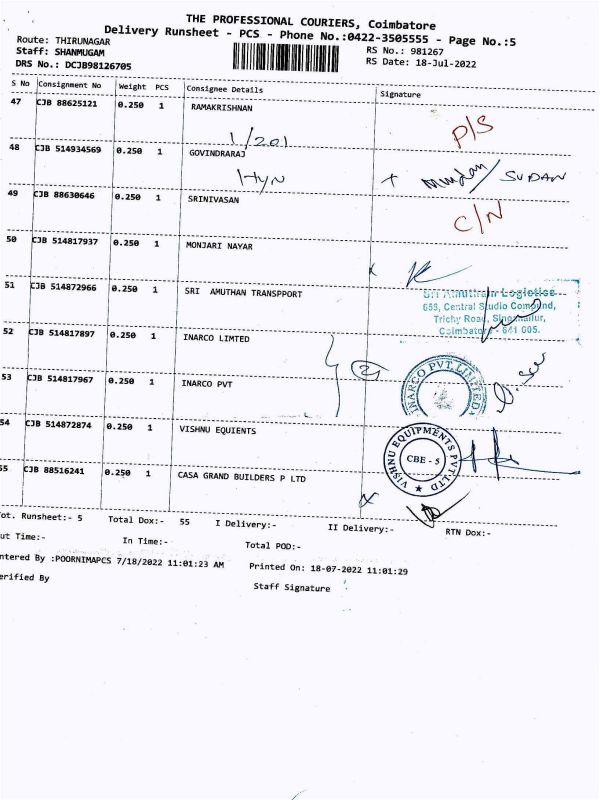 THE PROFESSIONAL COURIERS, Coimbatore
Delivery Runsheet - PCS - Phone No.:0422-3505555 - Page No.:5
Route: THIRUNAGAR
RS No.: 981267
Staff: SHANMUGAM
RS Date: 18-Jul-2022
DRS No.: DCJB98126705
S No Consignment No Weight PCS Consignee Details Signature
47 CJB 88625121 0.250 1 RAMAKRISHNAN
1/201 P/S
48 CJB 514934569 0.250 1 GOVINDRARAJ
SUDAN
49 CJB 88630646 0.250 1 SRINIVASAN
C/N
50 CJB 514817937 0.250 1 MONJARI NAYAR
51 CJB 514872966 0.250 1 SRI AMUTHAN TRANSPPORT
Sri Amuthan Logistics
653, Central Studio Compound,
Trichy Road, Singanallur,
Coimbatore - 641 005.
52 CJB 514817897 0.250 1 INARCO LIMTED
2
INARCO PVT. LIMITED
53 CJB 514817967 0.250 1 INARCO PVT
54 CJB 514872874 0.250 1 VISHNU EQUIENTS
VISHNU EQUIPMENTS PVT.LTD
CBE - 5
55 CJB 88516241 0.250 1 CASA GRAND BUILDERS P LTD
ot. Runsheet:- 5 Total Dox:- 55 I Delivery:- II Delivery:- RTN Dox:-
ut Time:- In Time:- Total POD:-
ntered By :POORNIMAPCS 7/18/2022 11:01:23 AM Printed On: 18-07-2022 11:01:29
erified By Staff Signature